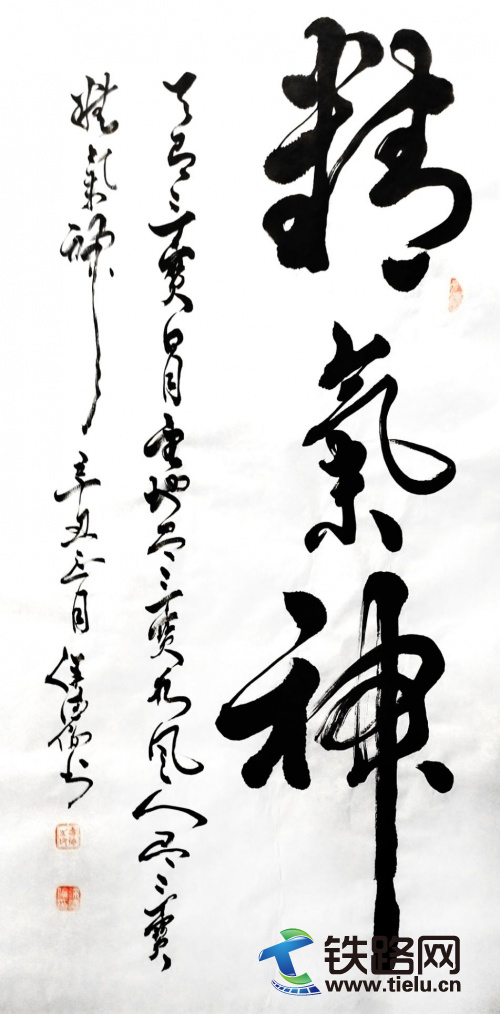 精氣神
天有三寶日月星地有三寶水風人有三寶
精氣神 辛丑正月 书
铁路网
www.tielu.cn